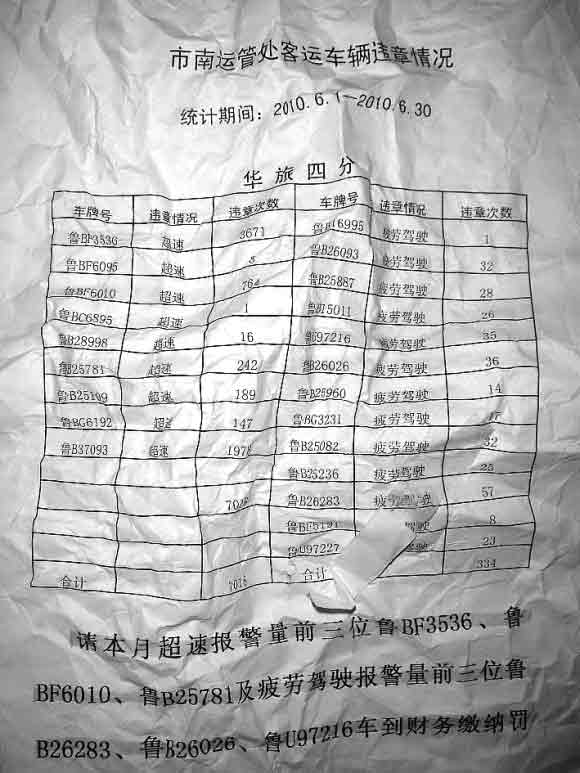 市南运管处客运车辆违章情况
统计期间：2010.6.1—2010.6.30
华旅四分
车牌号 违章情况 违章次数 车牌号 违章情况 违章次数
鲁BF3536 超速 3671 疲劳驾驶 1
鲁BF6095 超速 8 鲁B26093 疲劳驾驶 32
鲁BF6010 超速 764 鲁B25887 疲劳驾驶 28
鲁BC6895 超速 1 疲劳驾驶 26
鲁B28998 超速 16 鲁U97216 疲劳驾驶 35
鲁B25781 超速 242 鲁B26026 疲劳驾驶 36
鲁B25199 超速 189 鲁B25960 疲劳驾驶 14
鲁BG6192 超速 147 鲁BG3231 疲劳驾驶 17
鲁B37093 超速 1978 鲁B25082 疲劳驾驶 32
鲁B25236 疲劳驾驶 25
鲁B26283 疲劳驾驶 57
驾驶 8
鲁U97227 驾驶 23
合计 7016 合计 334
请本月超速报警量前三位鲁BF3536、鲁
BF6010、鲁B25781及疲劳驾驶报警量前三位鲁
B26283、鲁B26026、鲁U97216车到财务缴纳罚